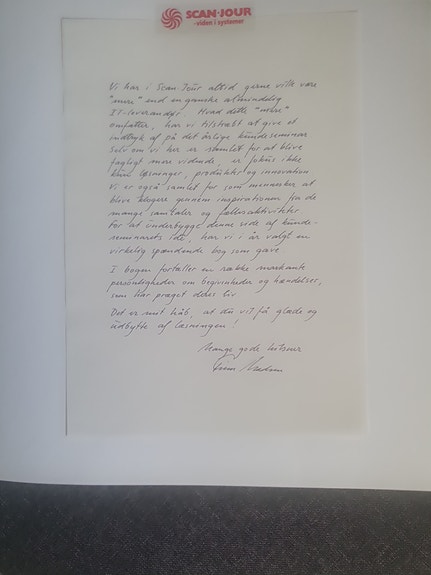 SCAN·JOUR
- viden i systemer
Vi har i Scan-Jour altid gerne ville være
"mere" end en ganske almindelig
IT-leverandør. Hvad dette "mere"
omfatter, har vi tilstræbt at give et
indtryk af på det årlige kundeseminar
Selv om vi her er samlet for at blive
fagligt mere vidende, er fokus ikke
kun løsninger, produkter og innovation
Vi er også samlet for som mennesker at
blive klogere gennem inspirationen fra de
mange samtaler og fællesaktiviteter
For at underbygge denne side af kunde-
seminarets idé, har vi i år valgt en
virkelig spændende bog som gave
I bogen fortæller en række markante
personligheder om begivenheder og hændelser,
som har præget deres liv
Det er mit håb, at du vil få glæde og
udbytte af læsningen!
Mange gode hilsner